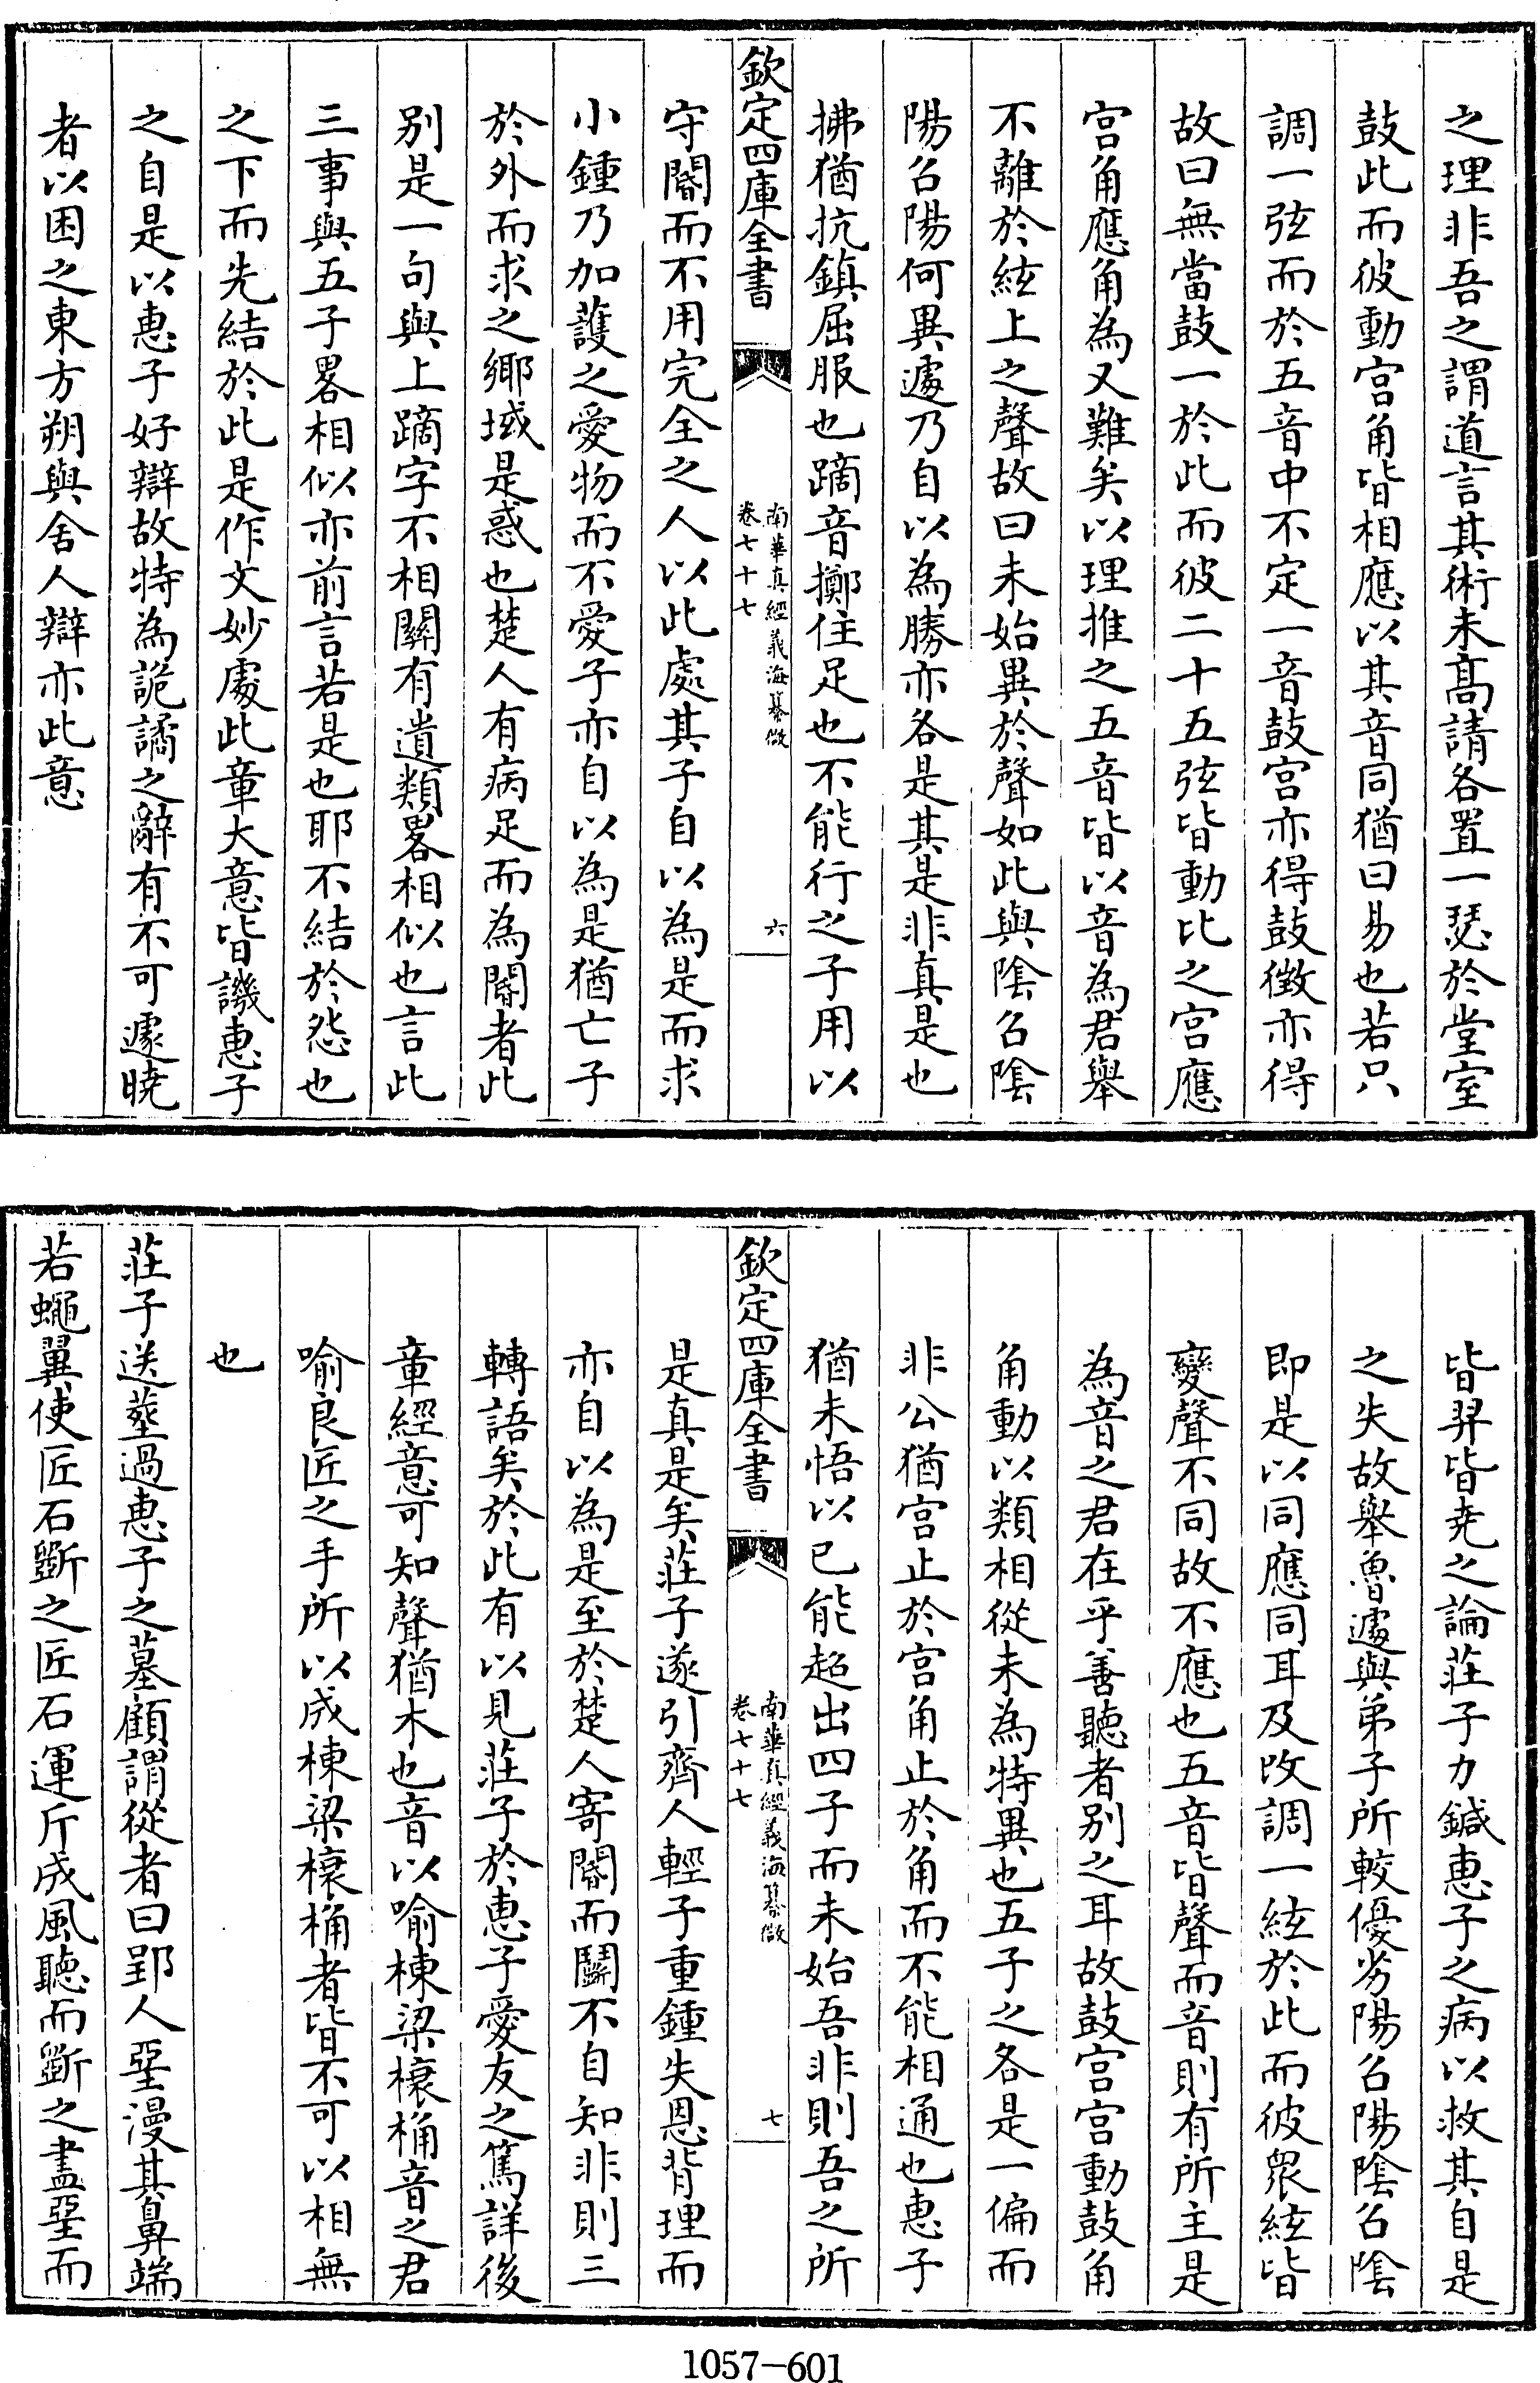 之理非吾之謂道言其術未髙請各置一瑟於堂室
鼓此而彼動宫角皆相應以其音同猶曰易也若只
調一弦而於五音中不定一音鼓宫亦得鼓徴亦得
故曰無當鼓一於此而彼二十五弦皆動比之宫應
宫角應角為又難矣以理推之五音皆以音為君舉
不離於絃上之聲故曰未始異於聲如此與陰召陰
陽召陽何異遽乃自以為勝亦各是其是非真是也
拂猶抗鎮屈服也蹢音擲住足也不能行之子用以
欽定四庫全書
南華真經義海纂微
卷七十七
六
守閽而不用完全之人以此處其子自以為是而求
小鍾乃加䕶之愛物而不愛子亦自以為是猶亡子
於外而求之鄉域是惑也楚人有病足而為閽者此
别是一句與上蹢字不相關有遺類畧相似也言此
三事與五子畧相似亦前言若是也耶不結於怨也
之下而先結於此是作文妙處此章大意皆譏惠子
之自是以惠子好辯故特為詭譎之辭有不可遽曉
者以困之東方朔與舍人辯亦此意
皆羿皆堯之論莊子力鍼惠子之病以救其自是
之失故舉魯遽與弟子所較優劣陽召陽陰召陰
即是以同應同耳及改調一絃於此而彼衆絃皆
變聲不同故不應也五音皆聲而音則有所主是
為音之君在乎善聽者别之耳故鼓宫宫動鼓角
角動以類相從未為特異也五子之各是一偏而
非公猶宫止於宫角止於角而不能相通也惠子
猶未悟以已能超出四子而未始吾非則吾之所
欽定四庫全書
南華真經義海纂微
卷七十七
七
是真是矣莊子遂引齊人輕子重鍾失恩背理而
亦自以為是至於楚人寄閽而鬭不自知非則三
轉語矣於此有以見莊子於惠子愛友之篤詳後
章經意可知聲猶木也音以喻棟梁榱桷音之君
喻良匠之手所以成棟梁榱桷者皆不可以相無
也
莊子送葬過惠子之墓顧謂從者曰郢人堊漫其鼻端
若蠅翼使匠石斲之匠石運斤成風聽而斲之盡堊而
1057-601